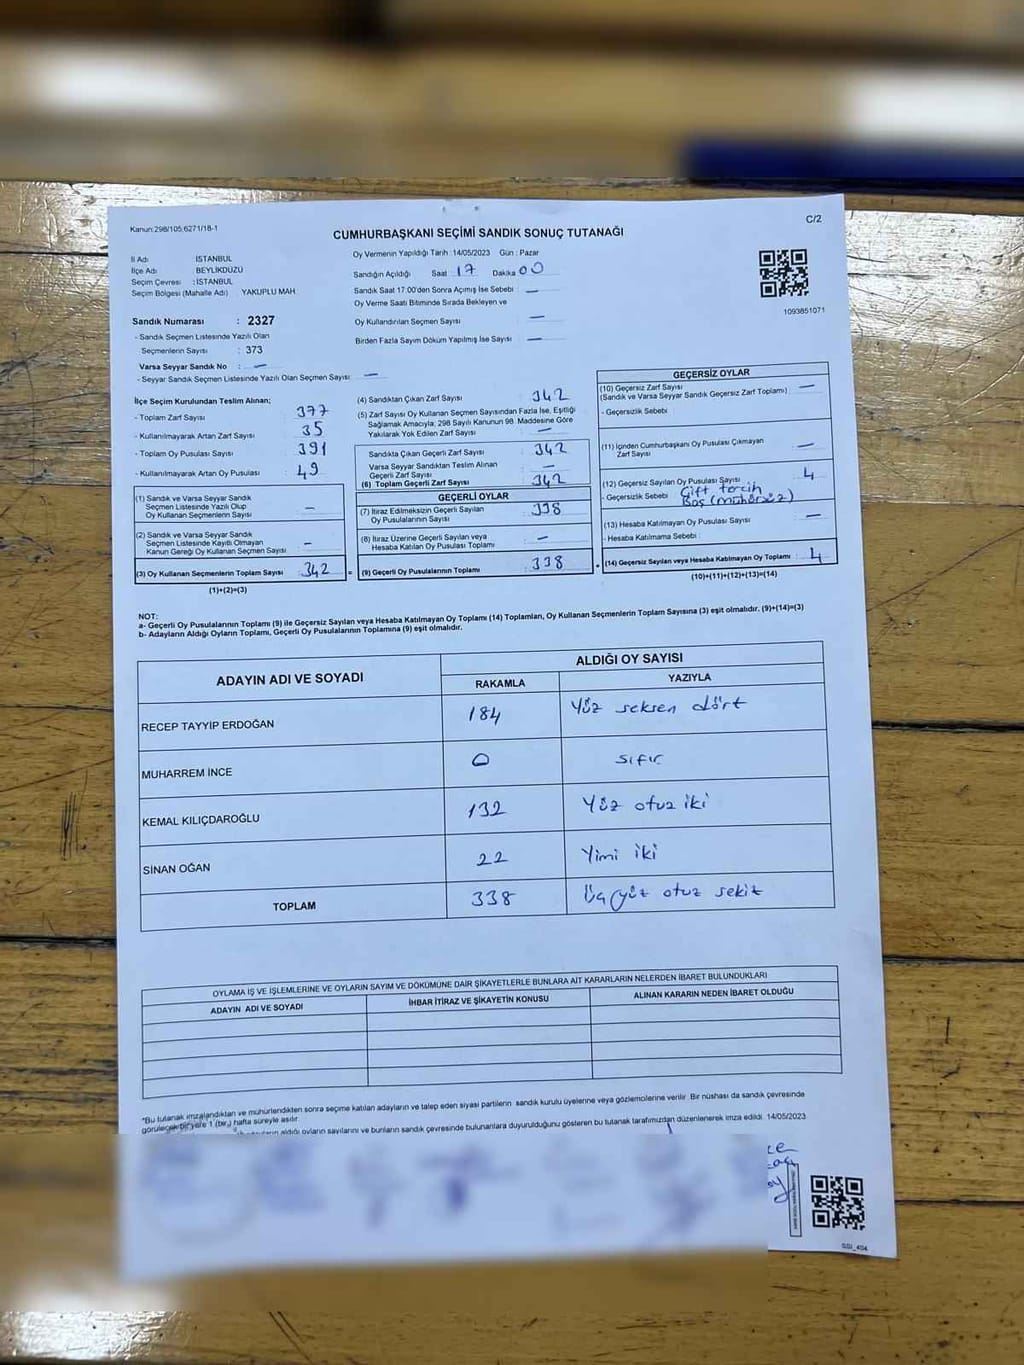 Kanun:298/105;6271/18-1
C/2
CUMHURBAŞKANI SEÇİMİ SANDIK SONUÇ TUTANAĞI
İl Adı İSTANBUL
İlçe Adı BEYLİKDÜZÜ
Seçim Çevresi : İSTANBUL
Seçim Bölgesi (Mahalle Adı) YAKUPLU MAH.
Sandık Numarası : 2327
- Sandık Seçmen Listesinde Yazılı Olan
Seçmenlerin Sayısı : 373
Varsa Seyyar Sandık No : —
- Seyyar Sandık Seçmen Listesinde Yazılı Olan Seçmen Sayısı : —
Oy Vermenin Yapıldığı Tarih : 14/05/2023 Gün : Pazar
Sandığın Açıldığı Saat 17 Dakika 00
Sandık Saat 17.00'den Sonra Açımış İse Sebebi : —
Oy Verme Saati Bitiminde Sırada Bekleyen ve
Oy Kullandırılan Seçmen Sayısı : —
Birden Fazla Sayım Döküm Yapılmış İse Sayısı : —
1093851071
İlçe Seçim Kurulundan Teslim Alınan;
- Toplam Zarf Sayısı : 377
- Kullanılmayarak Artan Zarf Sayısı : 35
- Toplam Oy Pusulası Sayısı : 391
- Kullanılmayarak Artan Oy Pusulası : 49
(1) Sandık ve Varsa Seyyar Sandık
Seçmen Listesinde Yazılı Olup
Oy Kullanan Seçmenlerin Sayısı : —
(2) Sandık ve Varsa Seyyar Sandık
Seçmen Listesinde Kayıtlı Olmayan
Kanun Gereği Oy Kullanan Seçmen Sayısı : —
(3) Oy Kullanan Seçmenlerin Toplam Sayısı : 342
(1)+(2)=(3)
(4) Sandıktan Çıkan Zarf Sayısı : 342
(5) Zarf Sayısı Oy Kullanan Seçmen Sayısından Fazla İse, Eşitliği
Sağlamak Amacıyla; 298 Sayılı Kanunun 98. Maddesine Göre
Yakılarak Yok Edilen Zarf Sayısı : —
Sandıkta Çıkan Geçerli Zarf Sayısı : 342
Varsa Seyyar Sandıktan Teslim Alınan
Geçerli Zarf Sayısı : —
(6) Toplam Geçerli Zarf Sayısı : 342
GEÇERLİ OYLAR
(7) İtiraz Edilmeksizin Geçerli Sayılan
Oy Pusulalarının Sayısı : 338
(8) İtiraz Üzerine Geçerli Sayılan veya
Hesaba Katılan Oy Pusulası Toplamı : —
= (9) Geçerli Oy Pusulalarının Toplamı : 338
GEÇERSİZ OYLAR
(10) Geçersiz Zarf Sayısı
(Sandık ve Varsa Seyyar Sandık Geçersiz Zarf Toplamı) : —
- Geçersizlik Sebebi :
(11) İçinden Cumhurbaşkanı Oy Pusulası Çıkmayan
Zarf Sayısı : —
(12) Geçersiz Sayılan Oy Pusulası Sayısı : 4
- Geçersizlik Sebebi : Çift tercih
Boş (mühürsüz)
(13) Hesaba Katılmayan Oy Pusulası Sayısı : —
- Hesaba Katılmama Sebebi :
+ (14) Geçersiz Sayılan veya Hesaba Katılmayan Oy Toplamı : 4
(10)+(11)+(12)+(13)=(14)
NOT:
a- Geçerli Oy Pusulalarının Toplamı (9) ile Geçersiz Sayılan veya Hesaba Katılmayan Oy Toplamı (14) Toplamları, Oy Kullanan Seçmenlerin Toplam Sayısına (3) eşit olmalıdır. (9)+(14)=(3)
b- Adayların Aldığı Oyların Toplamı, Geçerli Oy Pusulalarının Toplamına (9) eşit olmalıdır.
ADAYIN ADI VE SOYADI ALDIĞI OY SAYISI
RAKAMLA YAZIYLA
RECEP TAYYİP ERDOĞAN 184 Yüz seksen dört
MUHARREM İNCE 0 sıfır
KEMAL KILIÇDAROĞLU 132 Yüz otuz iki
SİNAN OĞAN 22 Yimi iki
TOPLAM 338 Üçyüz otuz sekiz
OYLAMA İŞ VE İŞLEMLERİNE VE OYLARIN SAYIM VE DÖKÜMÜNE DAİR ŞİKAYETLERLE BUNLARA AİT KARARLARIN NELERDEN İBARET BULUNDUKLARI
ADAYIN ADI VE SOYADI İHBAR İTİRAZ VE ŞİKAYETİN KONUSU ALINAN KARARIN NEDEN İBARET OLDUĞU
*Bu tutanak imzalandıktan ve mühürlendikten sonra seçime katılan adayların ve talep eden siyasi partilerin sandık kurulu üyelerine veya gözlemcilerine verilir. Bir nüshası da sandık çevresinde
görülecek bir yere 1 (bir) hafta süreyle asılır.
aldığı oyların sayılarını ve bunların sandık çevresinde bulunanlara duyurulduğunu gösteren bu tutanak tarafımızdan düzenlenerek imza edildi. 14/05/2023